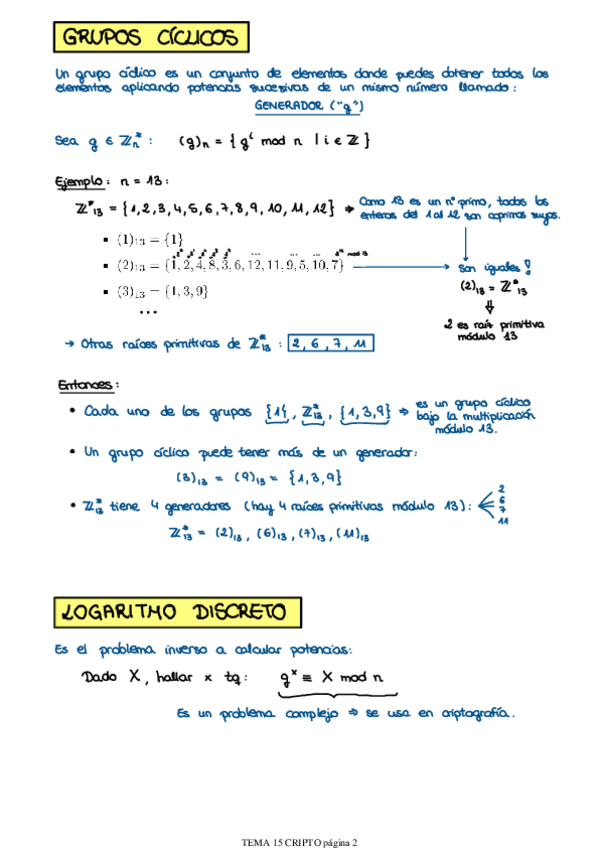 GRUPOS CÍCLICOS
Un grupo cíclico es un conjunto de elementos donde puedes obtener todos los
elementos aplicando potencias sucesivas de un mismo número llamado:
GENERADOR ("g")
Sea g ∈ ℤn* : (g)n = { g^i mod n | i ∈ ℤ }
Ejemplo: n = 13:
ℤ*13 = {1,2,3,4,5,6,7,8,9,10,11,12} → Como 13 es un nº primo, todos los
enteros del 1 al 12 son coprimos suyos.
▪ (1)13 = {1}
▪ (2)13 = {1, 2, 4, 8, 3, 6, 12, 11, 9, 5, 10, 7} → son iguales!
(2)13 = ℤ*13
▪ (3)13 = {1, 3, 9}
...
⇓
2 es raíz primitiva
módulo 13
→ Otras raíces primitivas de ℤ*13 : 2, 6, 7, 11
Entonces:
• Cada uno de los grupos {1}, ℤ*13, {1,3,9} ⇒ es un grupo cíclico
bajo la multiplicación
módulo 13.
• Un grupo cíclico puede tener más de un generador:
(3)13 = (9)13 = {1,3,9}
• ℤ*13 tiene 4 generadores (hay 4 raíces primitivas módulo 13): 2
6
7
11
ℤ*13 = (2)13, (6)13, (7)13, (11)13
LOGARITMO DISCRETO
Es el problema inverso a calcular potencias:
Dado X, hallar x tq: g^x ≡ X mod n
Es un problema complejo ⇒ se usa en criptografía.
TEMA 15 CRIPTO página 2